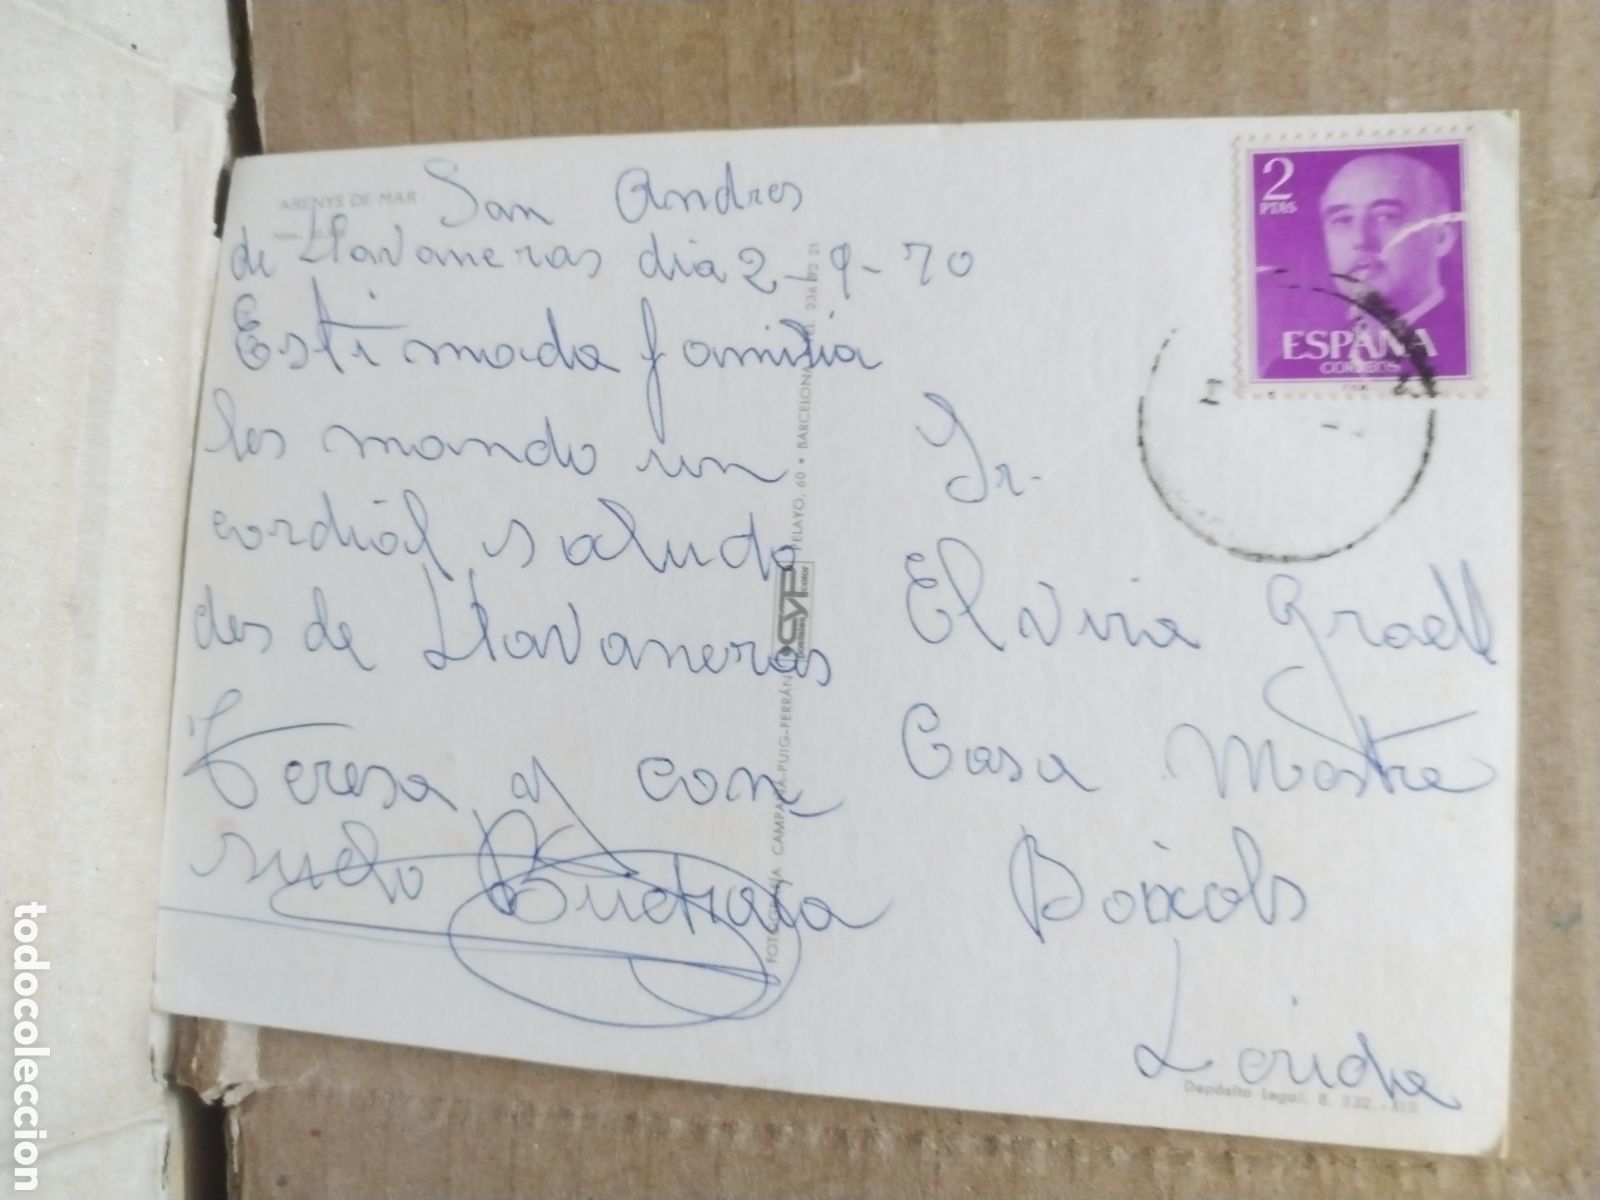 ARENYS DE MAR
San Andres
de Llavaneras dia 2-9-70
Estimada familia
les mando un
cordiál saludo
des de Llavaneras
Teresa y con
suelo
FOTOGRAFÍA CAMPAÑÁ-PUIG-FERRÁN
postales CYP color
PELAYO, 60 • BARCELONA TEL. 236 92 21
2
PTAS
ESPAÑA
CORREOS
Sr.
Elvira Graell
Casa Mostre
Boixols
Lerida
Depósito Legal. B. 232.-XIII
todocoleccion